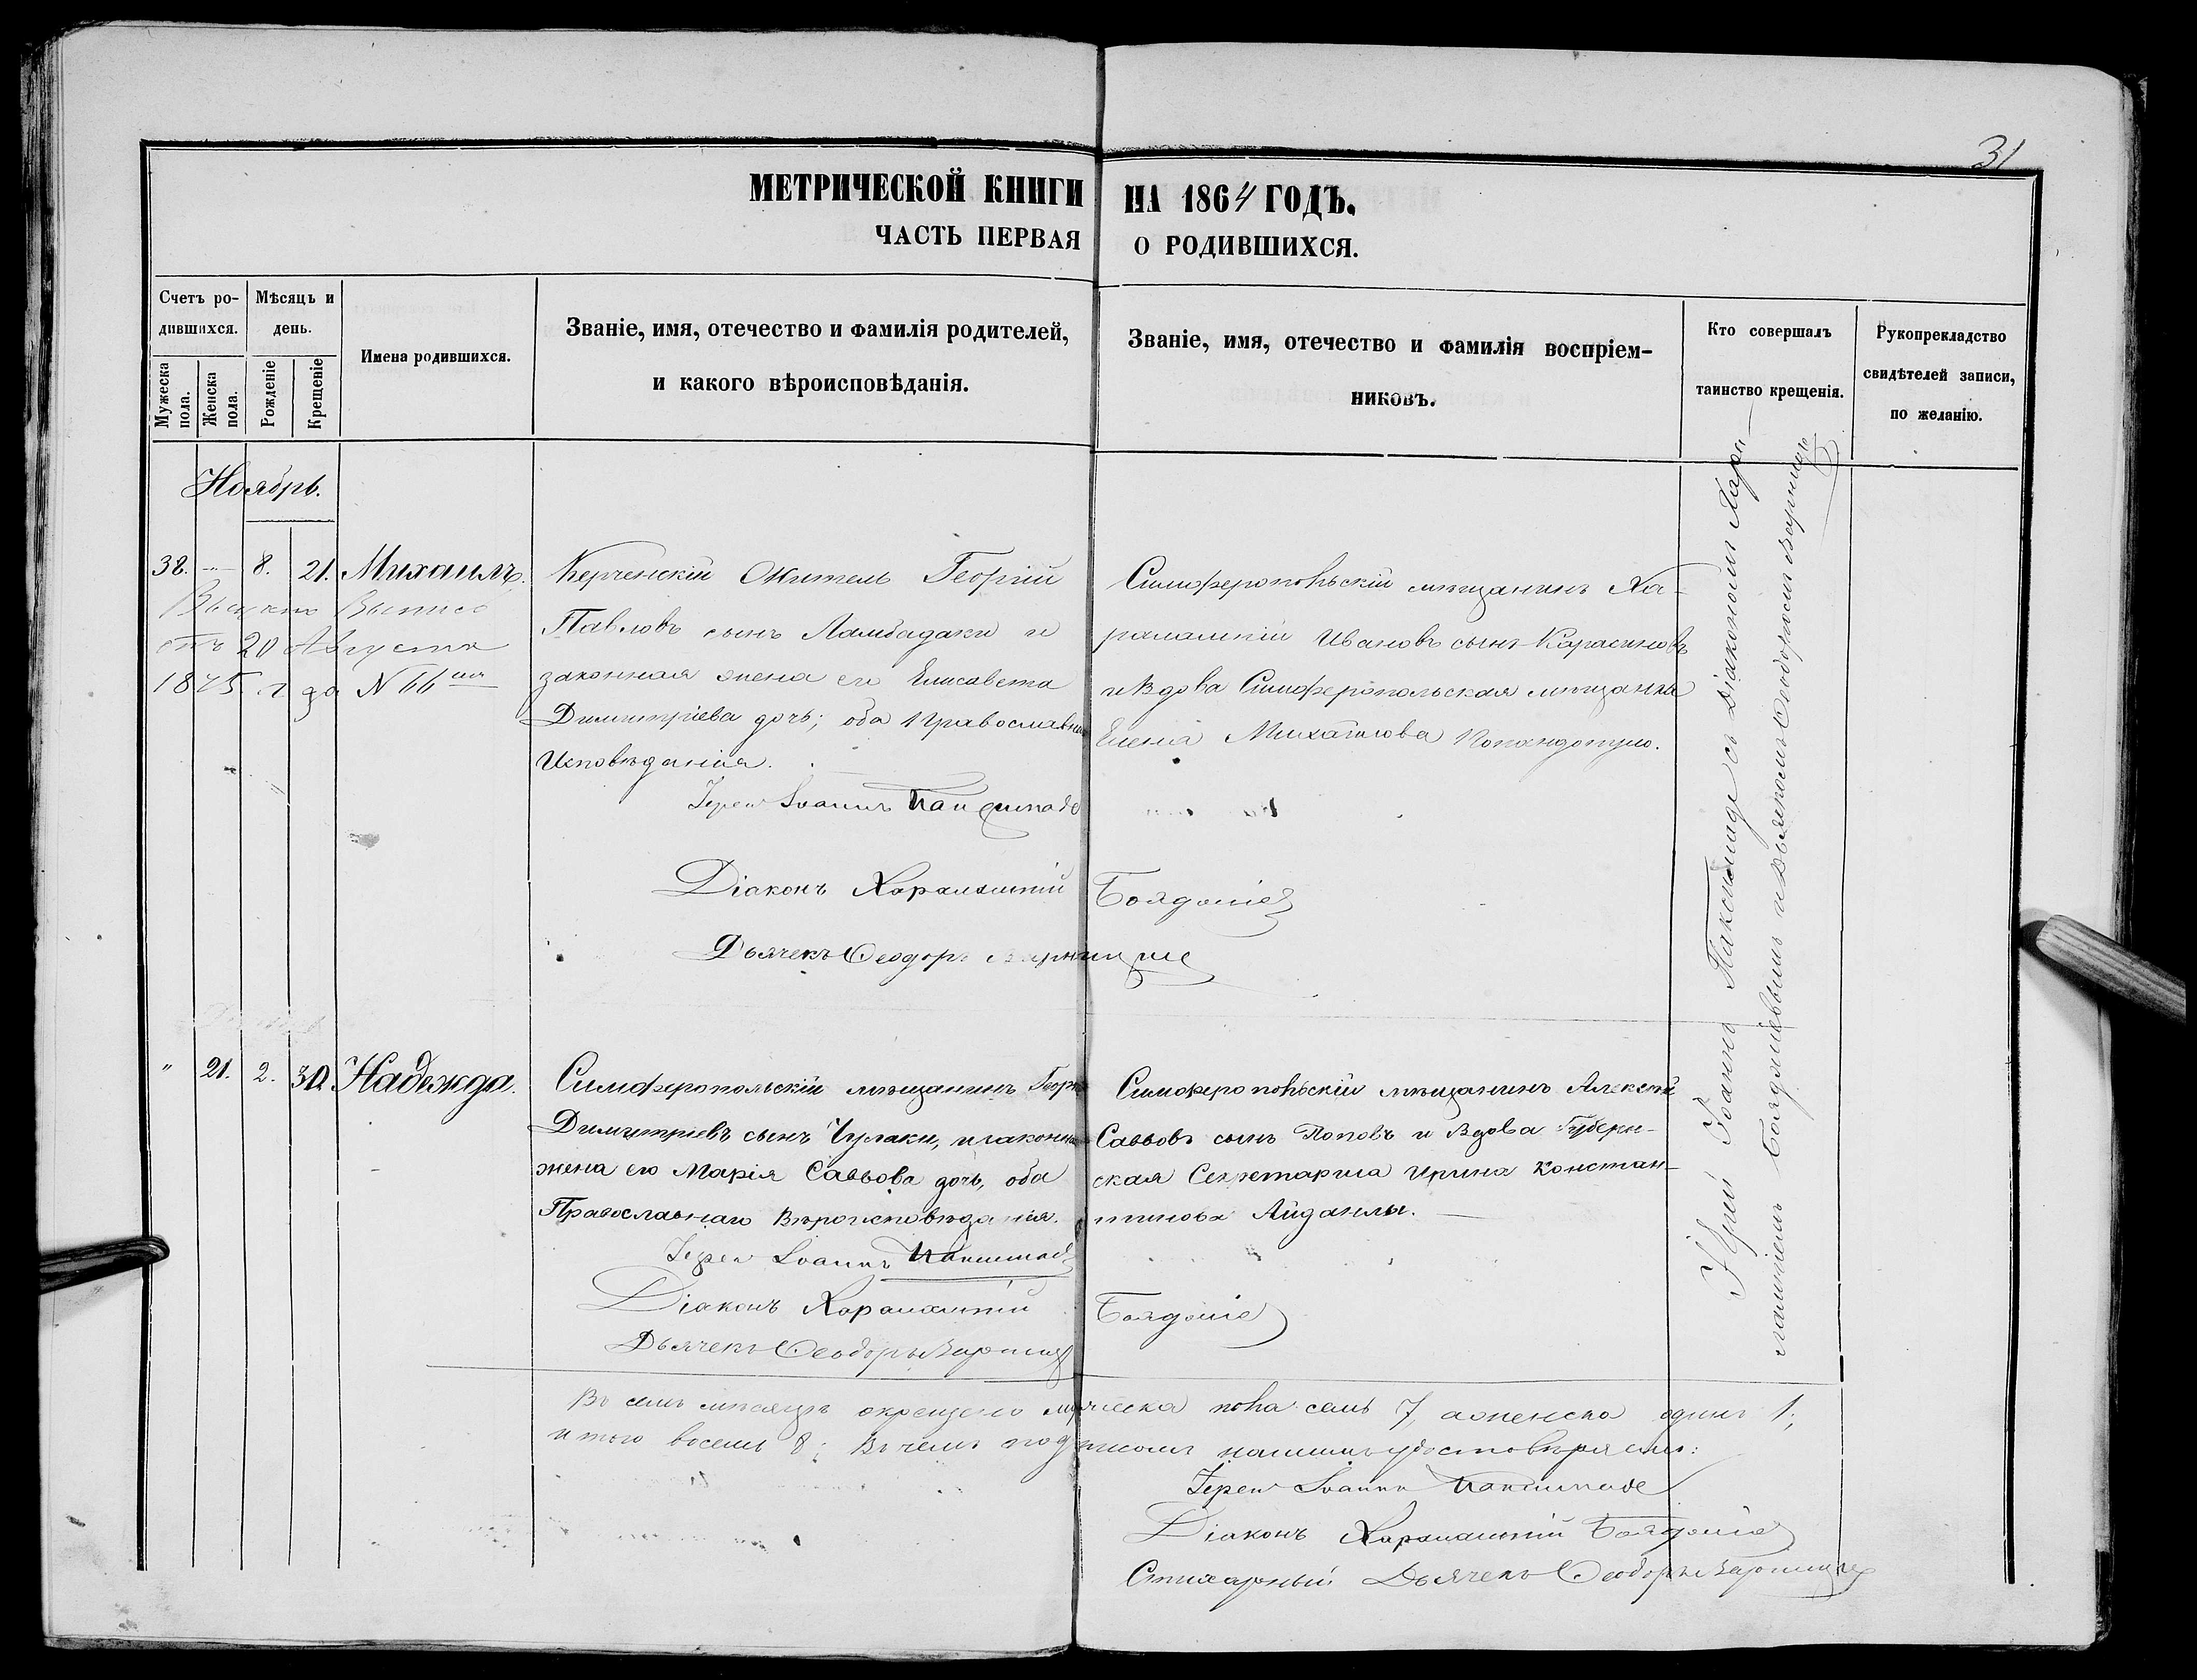 31
МЕТРИЧЕСКОЙ КНИГИ НА 1864 ГОДЪ.
ЧАСТЬ ПЕРВАЯ О РОДИВШИХСЯ.
Счетъ ро-
дившихся.
Мужеска пола.
Женска пола.
Мѣсяцъ и
день.
Рожденіе
Крещеніе
Имена родившихся.
Званіе, имя, отечество и фамилія родителей,
и какого вѣроисповѣданія.
Званіе, имя, отечество и фамилія воспріем-
никовъ.
Кто совершалъ
таинство крещенія.
Рукопрекладство
свидѣтелей записи,
по желанію.
Ноябрь.
38. — 8. 21. Михаилъ.
отъ 20 Августа
1875 г за N 66
Керченскій Житель Георгій
Павловъ сынъ Ламбадаки и
законная жена его Елисавета
Димитріева дочь; оба Православна
Исповѣданія.
Симферопольскій мѣщанинъ Ха-
рамампій Ивановъ сынъ Карасиновъ
и Вдова Симферопольская мѣщанка
Елена Михайлова Попандопуло.
Іерей Іоаннъ
Діаконъ Харалампій
Дьячекъ Ѳеодоръ
" 21. 2. 30. Надежда.
Симферопольскій мѣщанинъ Георгій
Димитріевъ сынъ Чулаки, и законная
жена его Марія Саввова дочь, оба
Православнаго Вѣроисповѣданія.
Симферопольскій мѣщанинъ Алексѣй
Саввовъ сынъ Поповъ и Вдова Губерн-
ская Секретарша Ирина Констан-
тинова
Іерей Іоаннъ
Діаконъ Харалампій
Дьячекъ Ѳеодоръ
Іерей Іоаннъ съ Діакономъ Хара-
лампіемъ и Дьячкомъ Ѳеодоромъ
Въ семъ мѣсяцѣ окрещено мужеска пола семь 7, а женска одинъ 1;
итого восемь 8; въ чемъ подписомъ нашимъ удостовѣряемъ:
Іерей Іоаннъ
Діаконъ Харалампій
Стихарный Дьячекъ Ѳеодоръ